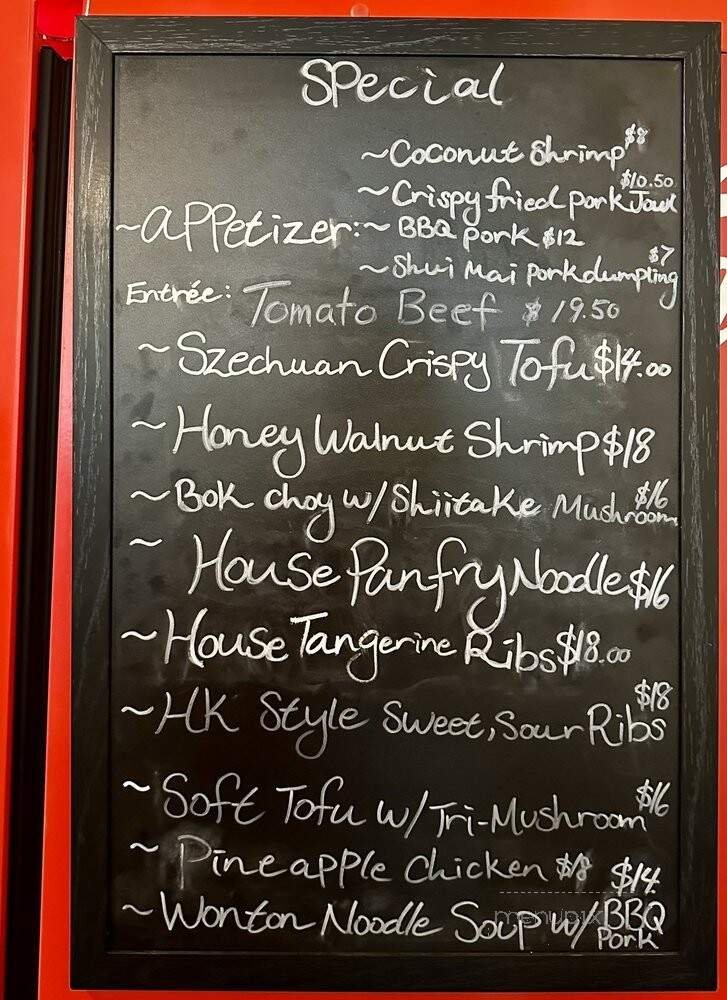 Special
~Coconut Shrimp $8
~Crispy fried pork Jowl $10.50
~Appetizer:~ BBQ pork $12
~Shui Mai porkdumpling $7
Entrée: Tomato Beef $19.50
~Szechuan Crispy Tofu $14.00
~Honey Walnut Shrimp $18
~Bok choy w/Shiitake Mushroom $16
~House Panfry Noodle $16
~House Tangerine Ribs $18.00
~HK Style Sweet, Sour Ribs $18
~Soft Tofu w/Tri-Mushroom $16
~Pineapple chicken $18
~Wonton Noodle Soup w/BBQ Pork $14
menupix